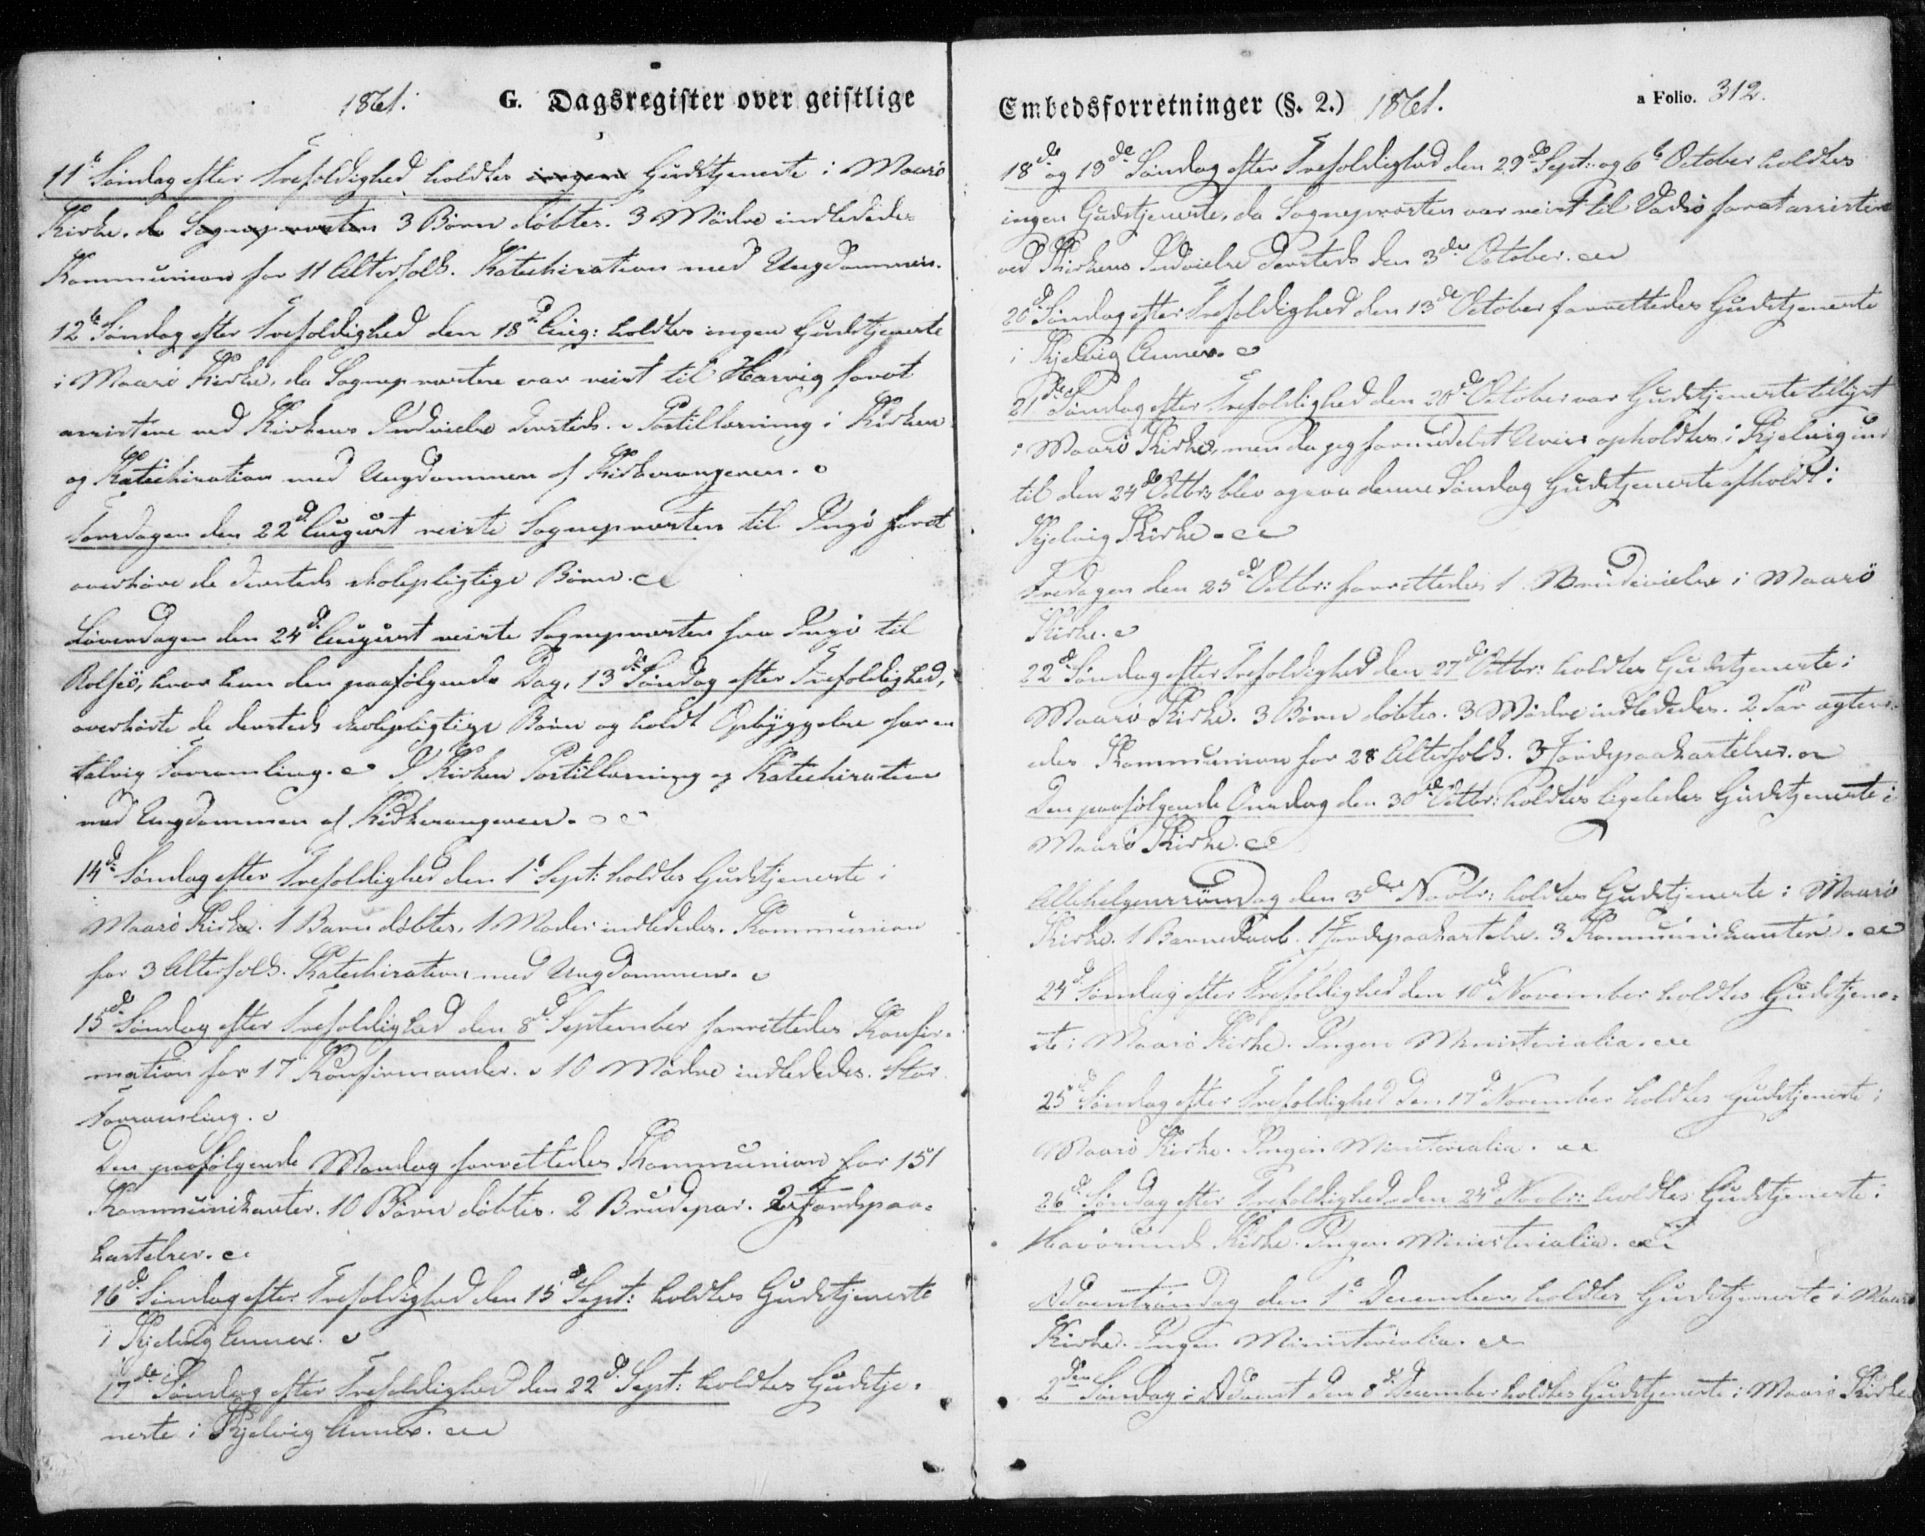 1861.
G. Dagsregister over geistlige
11te Søndag efter Trefoldighed holdtes ingen Gudstjeneste i Maasø
Kirke. da Sognepræsten 3 Børn døbtes. 3 Mødre indlededes
Kommunion for 11 Altersfolk. Katechisation med Ungdommen.
12te Søndag efter Trefoldighed den 18de Aug: holdtes ingen Gudstjeneste
i Maasø Kirke, da Sognepræsten var reist til Hasvig forat
assistere ved Kirkens Indvielse dersteds. Postillæsning i Kirken
og Katechisation med Ungdommen af Kirkesangeren.
Torsdagen den 22de August reiste Sognepræsten til Ingø forat
overhøre de dersteds skolepligtige Børn.
Løverdagen den 24de August reiste Sognepræsten fra Ingø til
Rolfsø, hvor han den paafølgende Dag, 13de Søndag efter Trefoldighed,
overhørte de dersteds skolepligtige Børn og holdt Opbyggelse for en
talrig Forsamling. I Kirken Postillæsning og Katechisation
med Ungdommen af Kirkesangeren.
14de Søndag efter Trefoldighed den 1e Sept: holdtes Gudstjeneste i
Maasø Kirke. 1 Barn døbtes, 1 Moder indlededes. Kommunion
for 3 Altersfolk. Katechisation med Ungdommen.
15de Søndag efter Trefoldighed den 8de September forrettedes Konfir-
mation for 17 Konfirmander. 10 Mødre indlededes. Stor
Forsamling.
Den paafølgende Mandag forrettedes Kommunion for 151
Kommunikanter. 10 Børn døbtes. 2 Brudepar. 2 Jordspaa-
kastelser.
16de Søndag efter Trefoldighed den 15de Sept: holdtes Gudstjeneste
i Kjelvig Annex.
17de Søndag efter Trefoldighed den 22de Sept: holdtes Gudstje-
neste i Kjelvig Annex.
Embedsforretninger (§. 2.) 1861.
a Folio. 312.
18de og 19de Søndag efter Trefoldighed den 29de Sept: og 6te October holdtes
ingen Gudstjeneste, da Sognepræsten var reist til Vadsø forat assistere
ved Kirkens Indvielse dersteds den 3die October.
20de Søndag efter Trefoldighed den 13de October forrettedes Gudstjeneste
i Kjelvig Annex.
21de Søndag efter Trefoldighed den 20de October var Gudstjeneste tillyst
i Maasø Kirke, men da jeg formedelst Uveir opholdtes i Kjelvig ind
til den 24de Octbr: blev ogsaa denne Søndag Gudstjeneste afholdt i
Kjelvig Kirke.
Fredagen den 25de Octbr: forrettedes 1 Brudevielse i Maasø
Kirke.
22de Søndag efter Trefoldighed den 27de Octbr: holdtes Gudstjeneste i
Maasø Kirke. 3 Børn døbtes. 3 Mødre indlededes. 2 Par ægtevi-
edes. Kommunion for 28 Altersfolk. 3 Jordspaakastelser.
Den paafølgende Onsdag den 30de Octbr: holdtes ligeledes Gudstjeneste i
Maasø Kirke.
Allehelgenssøndag den 3die Novbr: holdtes Gudstjeneste i Maasø
Kirke. 1 Barnedaab. 1 Jordspaakastelse. 3 Kommunikanter.
24de Søndag efter Trefoldighed den 10de November holdtes Gudstjene-
ste i Maasø Kirke. Ingen Ministerialia.
25de Søndag efter Trefoldighed den 17de November holdtes Gudstjeneste i
Maasø Kirke. Ingen Ministerialia.
26de Søndag efter Trefoldighed den 24de Novbr: holdtes Gudstjeneste i
Havøsund Kirke. Ingen Ministerialia.
Adventsøndag den 1e December holdtes Gudstjeneste i Maasø
Kirke. Ingen Ministerialia.
2den Søndag i Advent den 8de December holdtes Gudstjeneste i Maasø Kirke